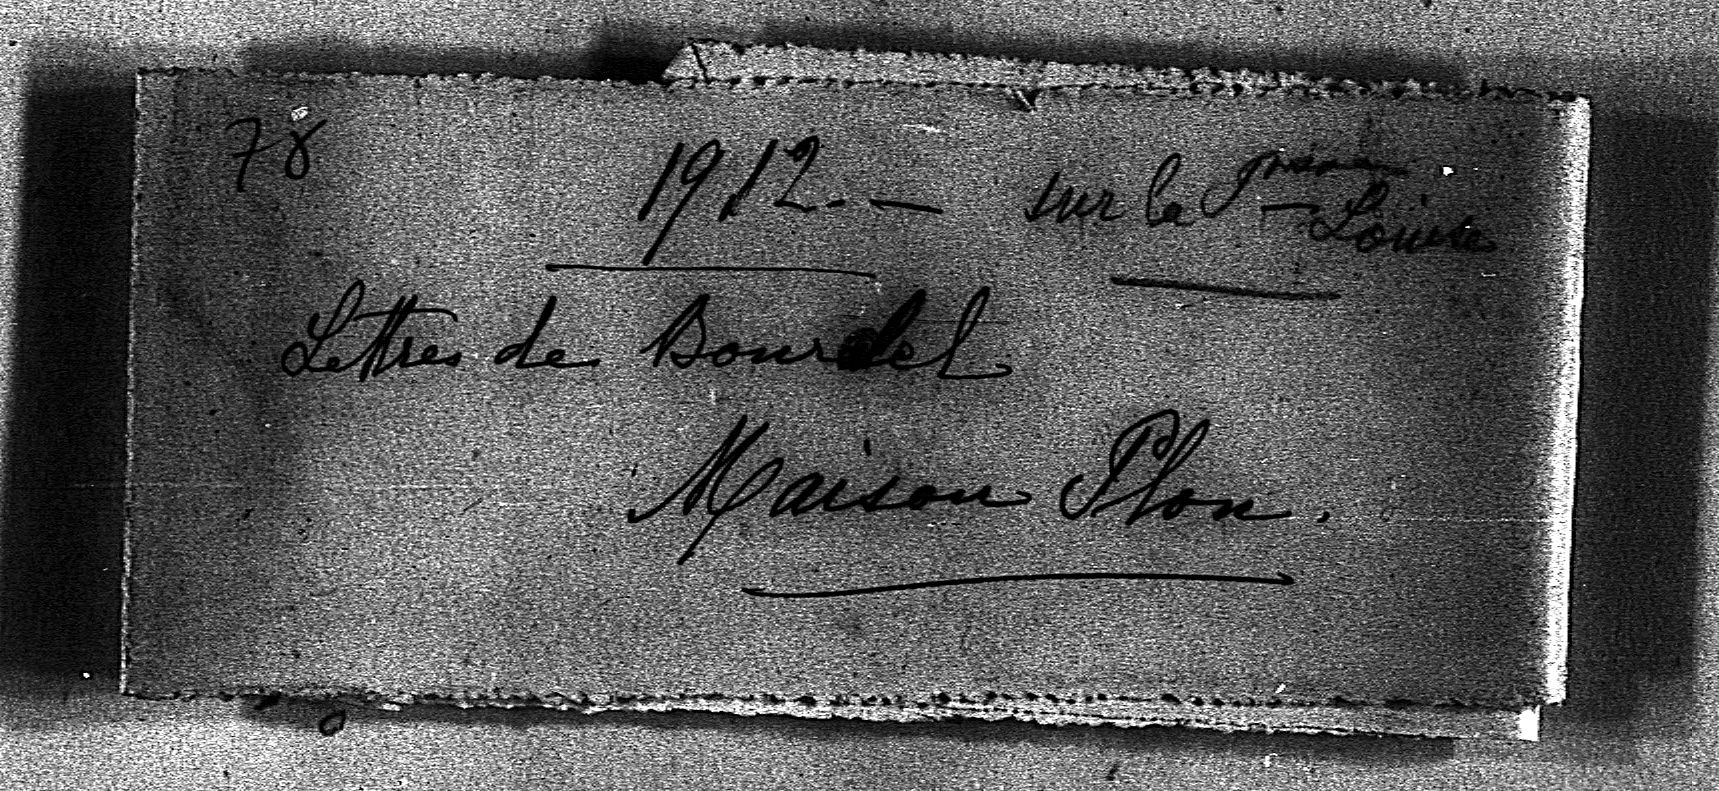 78
1912. — sur la Psse
— Louise
Lettres de Bourdel
Maison Plon.